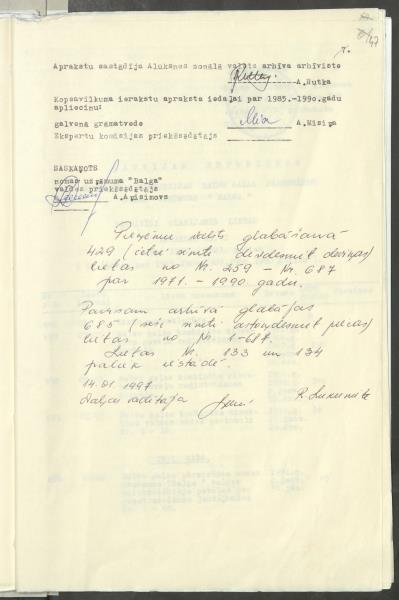 47
Aprakstu sastādīja Alūksnes zonālā valsts arhīva arhīviste
A.Rutka
Kopsavilkuma ierakstu apraksta iedaļai par 1985.-1990.gadu
apliecinu:
galvenā grāmatvede A.Misiņa
Ekspertu komisijas priekšsēdētājs
SASKAŅOTS
nomas uzņēmuma "Balga"
valdes priekšsēdētājs
A.Anisimovs
Pieņemtu valsts glabāšanā
429 (četri simti divdesmit deviņas)
lietas no Nr. 259 - Nr. 687
par 1971. - 1990. gadu.
Pavisam arhīvā glabājas
685 (seši simti astoņdesmit piecas)
lietas no Nr 1-687.
Lietas Nr. 133 un 134
paliek iestādē.
14.01.1997
Daļas vadītāja